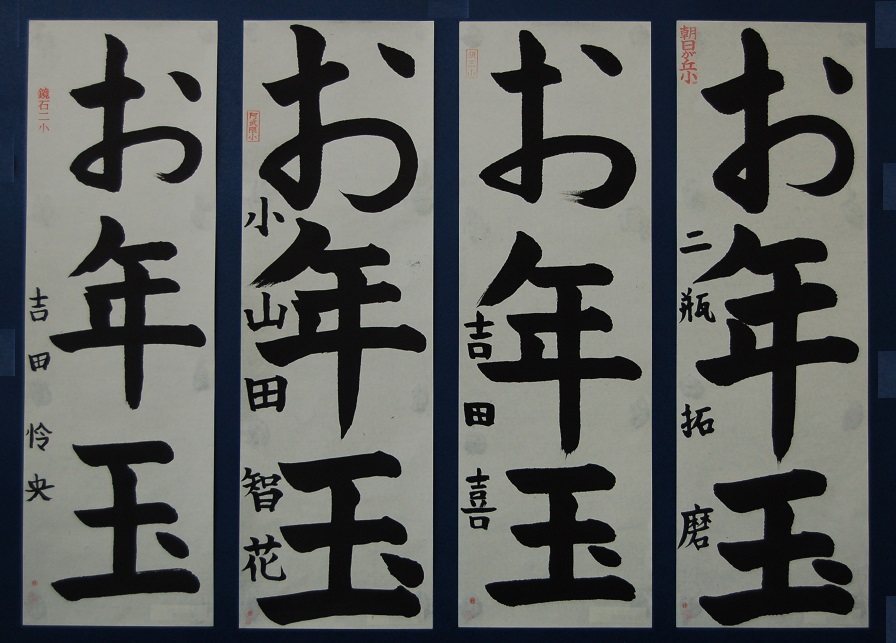 お年玉
朝日が丘小
二瓶 拓磨
お年玉
吉田 喜
お年玉
阿武隈小
小山田 智花
お年玉
鏡石二小
吉田 怜央